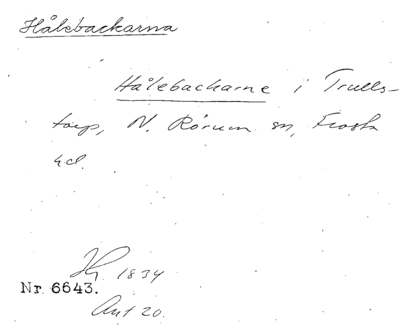 Hålebackarna
Hålebackarne i Trulls-
torp, N. Rörum sn, Frosta
hd.
Hg. 1834
Nr 6643.
Ant 20.